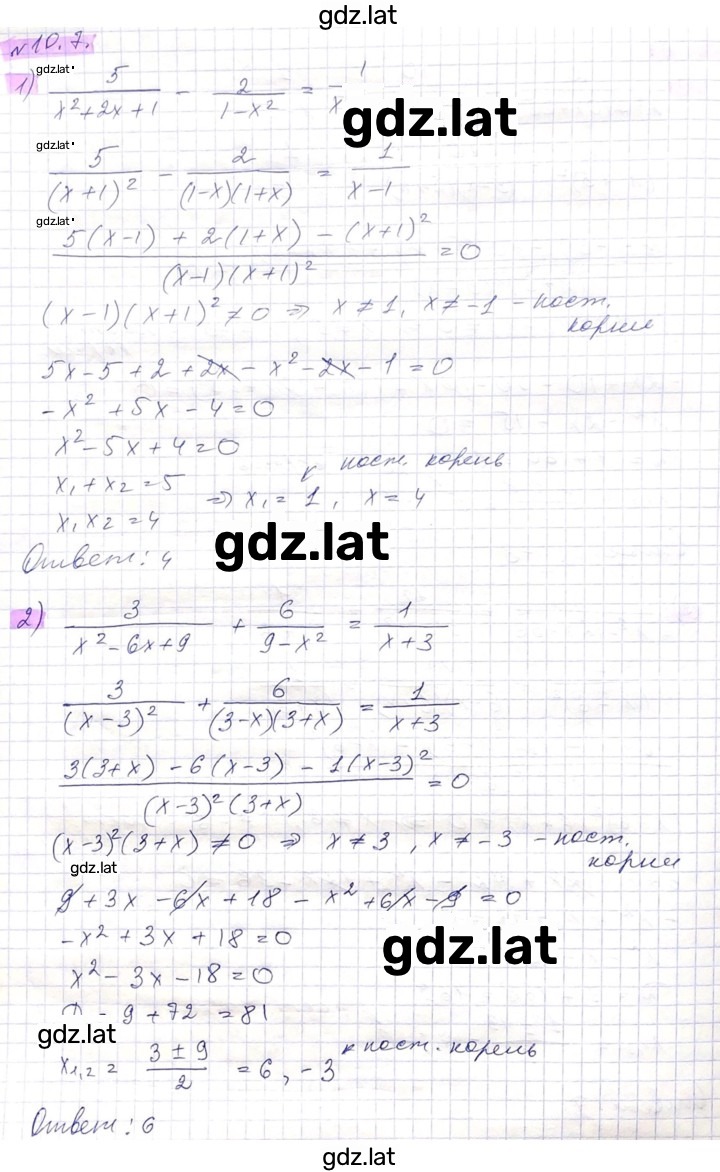 gdz.lat
№10.7.
1) 5/(x²+2x+1) - 2/(1-x²) = 1/x
gdz.lat
gdz.lat
5/(x+1)² - 2/((1-x)(1+x)) = 1/(x-1)
gdz.lat
gdz.lat
(5(x-1) + 2(1+x) - (x+1)²)/((x-1)(x+1)²) = 0
(x-1)(x+1)² ≠ 0 ⇒ x ≠ 1, x ≠ -1 - пост.
корни
5x - 5 + 2 + 2x - x² - 2x - 1 = 0
-x² + 5x - 4 = 0
x² - 5x + 4 = 0
пост. корень
x₁ + x₂ = 5
⇒ x₁ = 1, x = 4
x₁x₂ = 4
Ответ: 4
gdz.lat
2) 3/(x²-6x+9) + 6/(9-x²) = 1/(x+3)
3/(x-3)² + 6/((3-x)(3+x)) = 1/(x+3)
(3(3+x) - 6(x-3) - 1(x-3)²)/((x-3)²(3+x)) = 0
(x-3)²(3+x) ≠ 0 ⇒ x ≠ 3, x ≠ -3 - пост.
корни
gdz.lat
9 + 3x - 6x + 18 - x² + 6x - 9 = 0
-x² + 3x + 18 = 0
gdz.lat
x² - 3x - 18 = 0
- 9 + 72 = 81
gdz.lat
x₁,₂ = (3 ± 9)/2 = 6, -3
пост. корень
Ответ: 6
gdz.lat